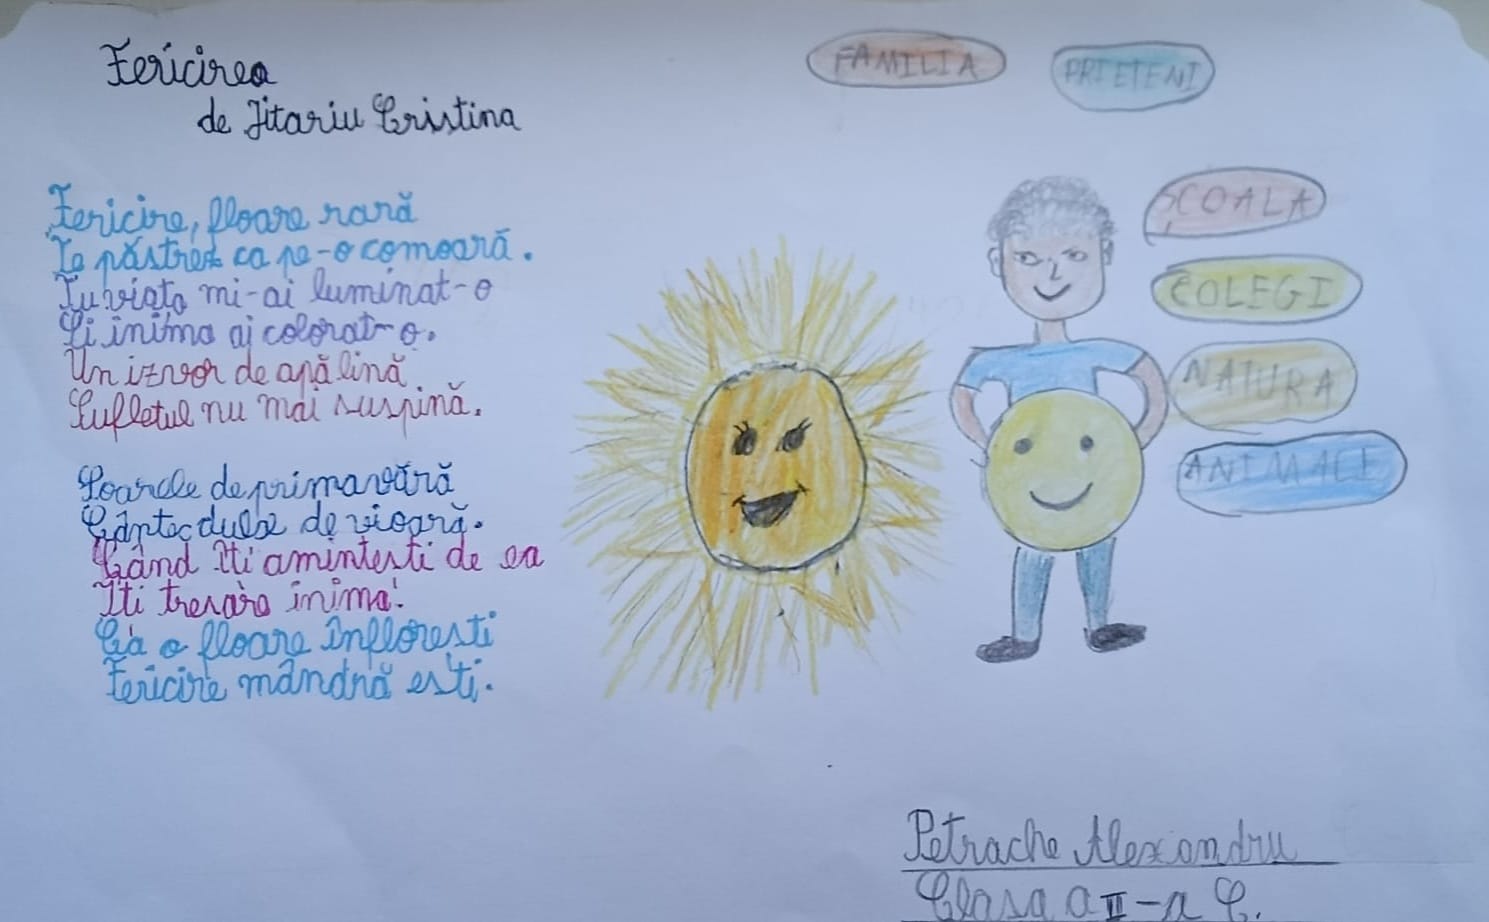 Fericirea
de Jitariu Cristina
Fericire, floare rară
Te păstrez ca pe-o comoară.
Tu viața mi-ai luminat-o
Și inima ai colorat-o.
Un izvor de apă lină
Sufletul nu mai suspină.
Soarele de primavără
Cântec dulce de vioară.
Când îți amintești de ea
Iți tresare inima!
Ca o floare înflorești
Fericire mândră ești.
FAMILIA
PRIETENI
ȘCOALA
COLEGI
NATURA
ANIMALE
Petrache Alexandru
Clasa a II-a C.